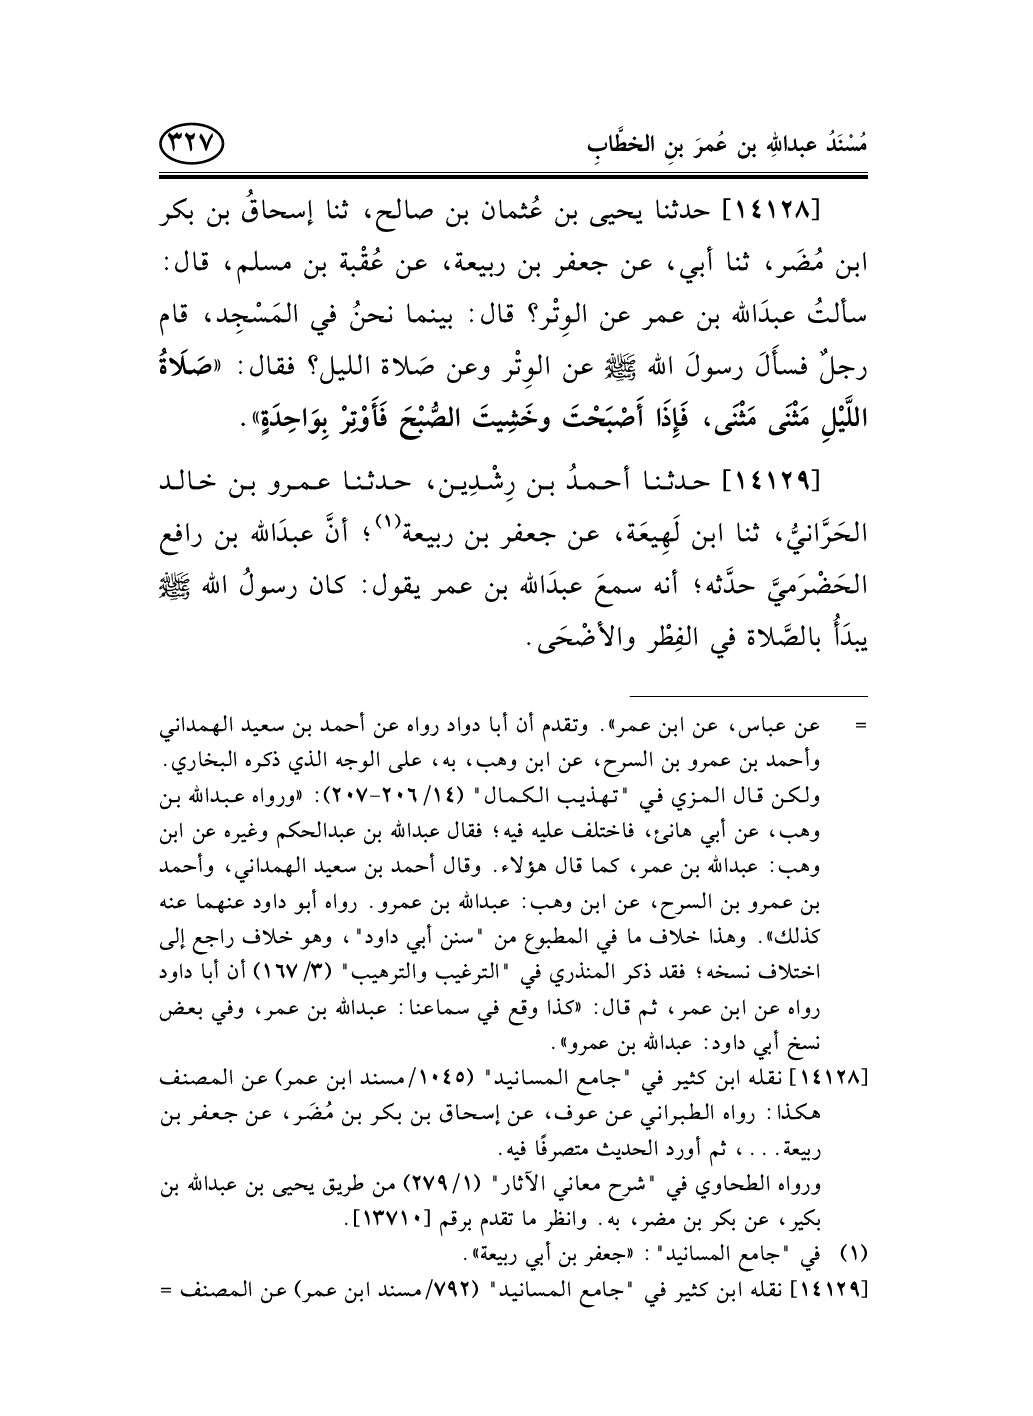 مُسْنَدُ عبدالله بن عُمرَ بنِ الخطَّابِ
٣٢٧
[١٤١٢٨] حدثنا يحيى بن عُثمان بن صالح، ثنا إسحاقُ بن بكر
ابن مُضَر، ثنا أبي، عن جعفر بن ربيعة، عن عُقْبة بن مسلم، قال:
سألتُ عبدَالله بن عمر عن الوِتْر؟ قال: بينما نحنُ في المَسْجِد، قام
رجلٌ فسأَلَ رسولَ الله ﷺ عن الوِتْر وعن صَلاة الليل؟ فقال: «صَلَاةُ
اللَّيْلِ مَثْنَى مَثْنَى، فَإِذَا أَصْبَحْتَ وخَشِيتَ الصُّبْحَ فَأَوْتِرْ بِوَاحِدَةٍ».
[١٤١٢٩] حدثنا أحمدُ بن رِشْدِين، حدثنا عمرو بن خالد
الحَرَّانيُّ، ثنا ابن لَهِيعَة، عن جعفر بن ربيعة(١)؛ أنَّ عبدَالله بن رافع
الحَضْرَميَّ حدَّثه؛ أنه سمعَ عبدَالله بن عمر يقول: كان رسولُ الله ﷺ
يبدَأُ بالصَّلاة في الفِطْر والأضْحَى.
= عن عباس، عن ابن عمر». وتقدم أن أبا دواد رواه عن أحمد بن سعيد الهمداني
وأحمد بن عمرو بن السرح، عن ابن وهب، به، على الوجه الذي ذكره البخاري.
ولكن قال المزي في "تهذيب الكمال" (١٤/ ٢٠٦-٢٠٧): «ورواه عبدالله بن
وهب، عن أبي هانئ، فاختلف عليه فيه؛ فقال عبدالله بن عبدالحكم وغيره عن ابن
وهب: عبدالله بن عمر، كما قال هؤلاء. وقال أحمد بن سعيد الهمداني، وأحمد
بن عمرو بن السرح، عن ابن وهب: عبدالله بن عمرو. رواه أبو داود عنهما عنه
كذلك». وهذا خلاف ما في المطبوع من "سنن أبي داود"، وهو خلاف راجع إلى
اختلاف نسخه؛ فقد ذكر المنذري في "الترغيب والترهيب" (٣/ ١٦٧) أن أبا داود
رواه عن ابن عمر، ثم قال: «كذا وقع في سماعنا: عبدالله بن عمر، وفي بعض
نسخ أبي داود: عبدالله بن عمرو».
[١٤١٢٨] نقله ابن كثير في "جامع المسانيد" (١٠٤٥/مسند ابن عمر) عن المصنف
هكذا: رواه الطبراني عن عوف، عن إسحاق بن بكر بن مُضَر، عن جعفر بن
ربيعة...، ثم أورد الحديث متصرفًا فيه.
ورواه الطحاوي في "شرح معاني الآثار" (١/ ٢٧٩) من طريق يحيى بن عبدالله بن
بكير، عن بكر بن مضر، به. وانظر ما تقدم برقم [١٣٧١٠].
(١) في "جامع المسانيد": «جعفر بن أبي ربيعة».
[١٤١٢٩] نقله ابن كثير في "جامع المسانيد" (٧٩٢/مسند ابن عمر) عن المصنف =